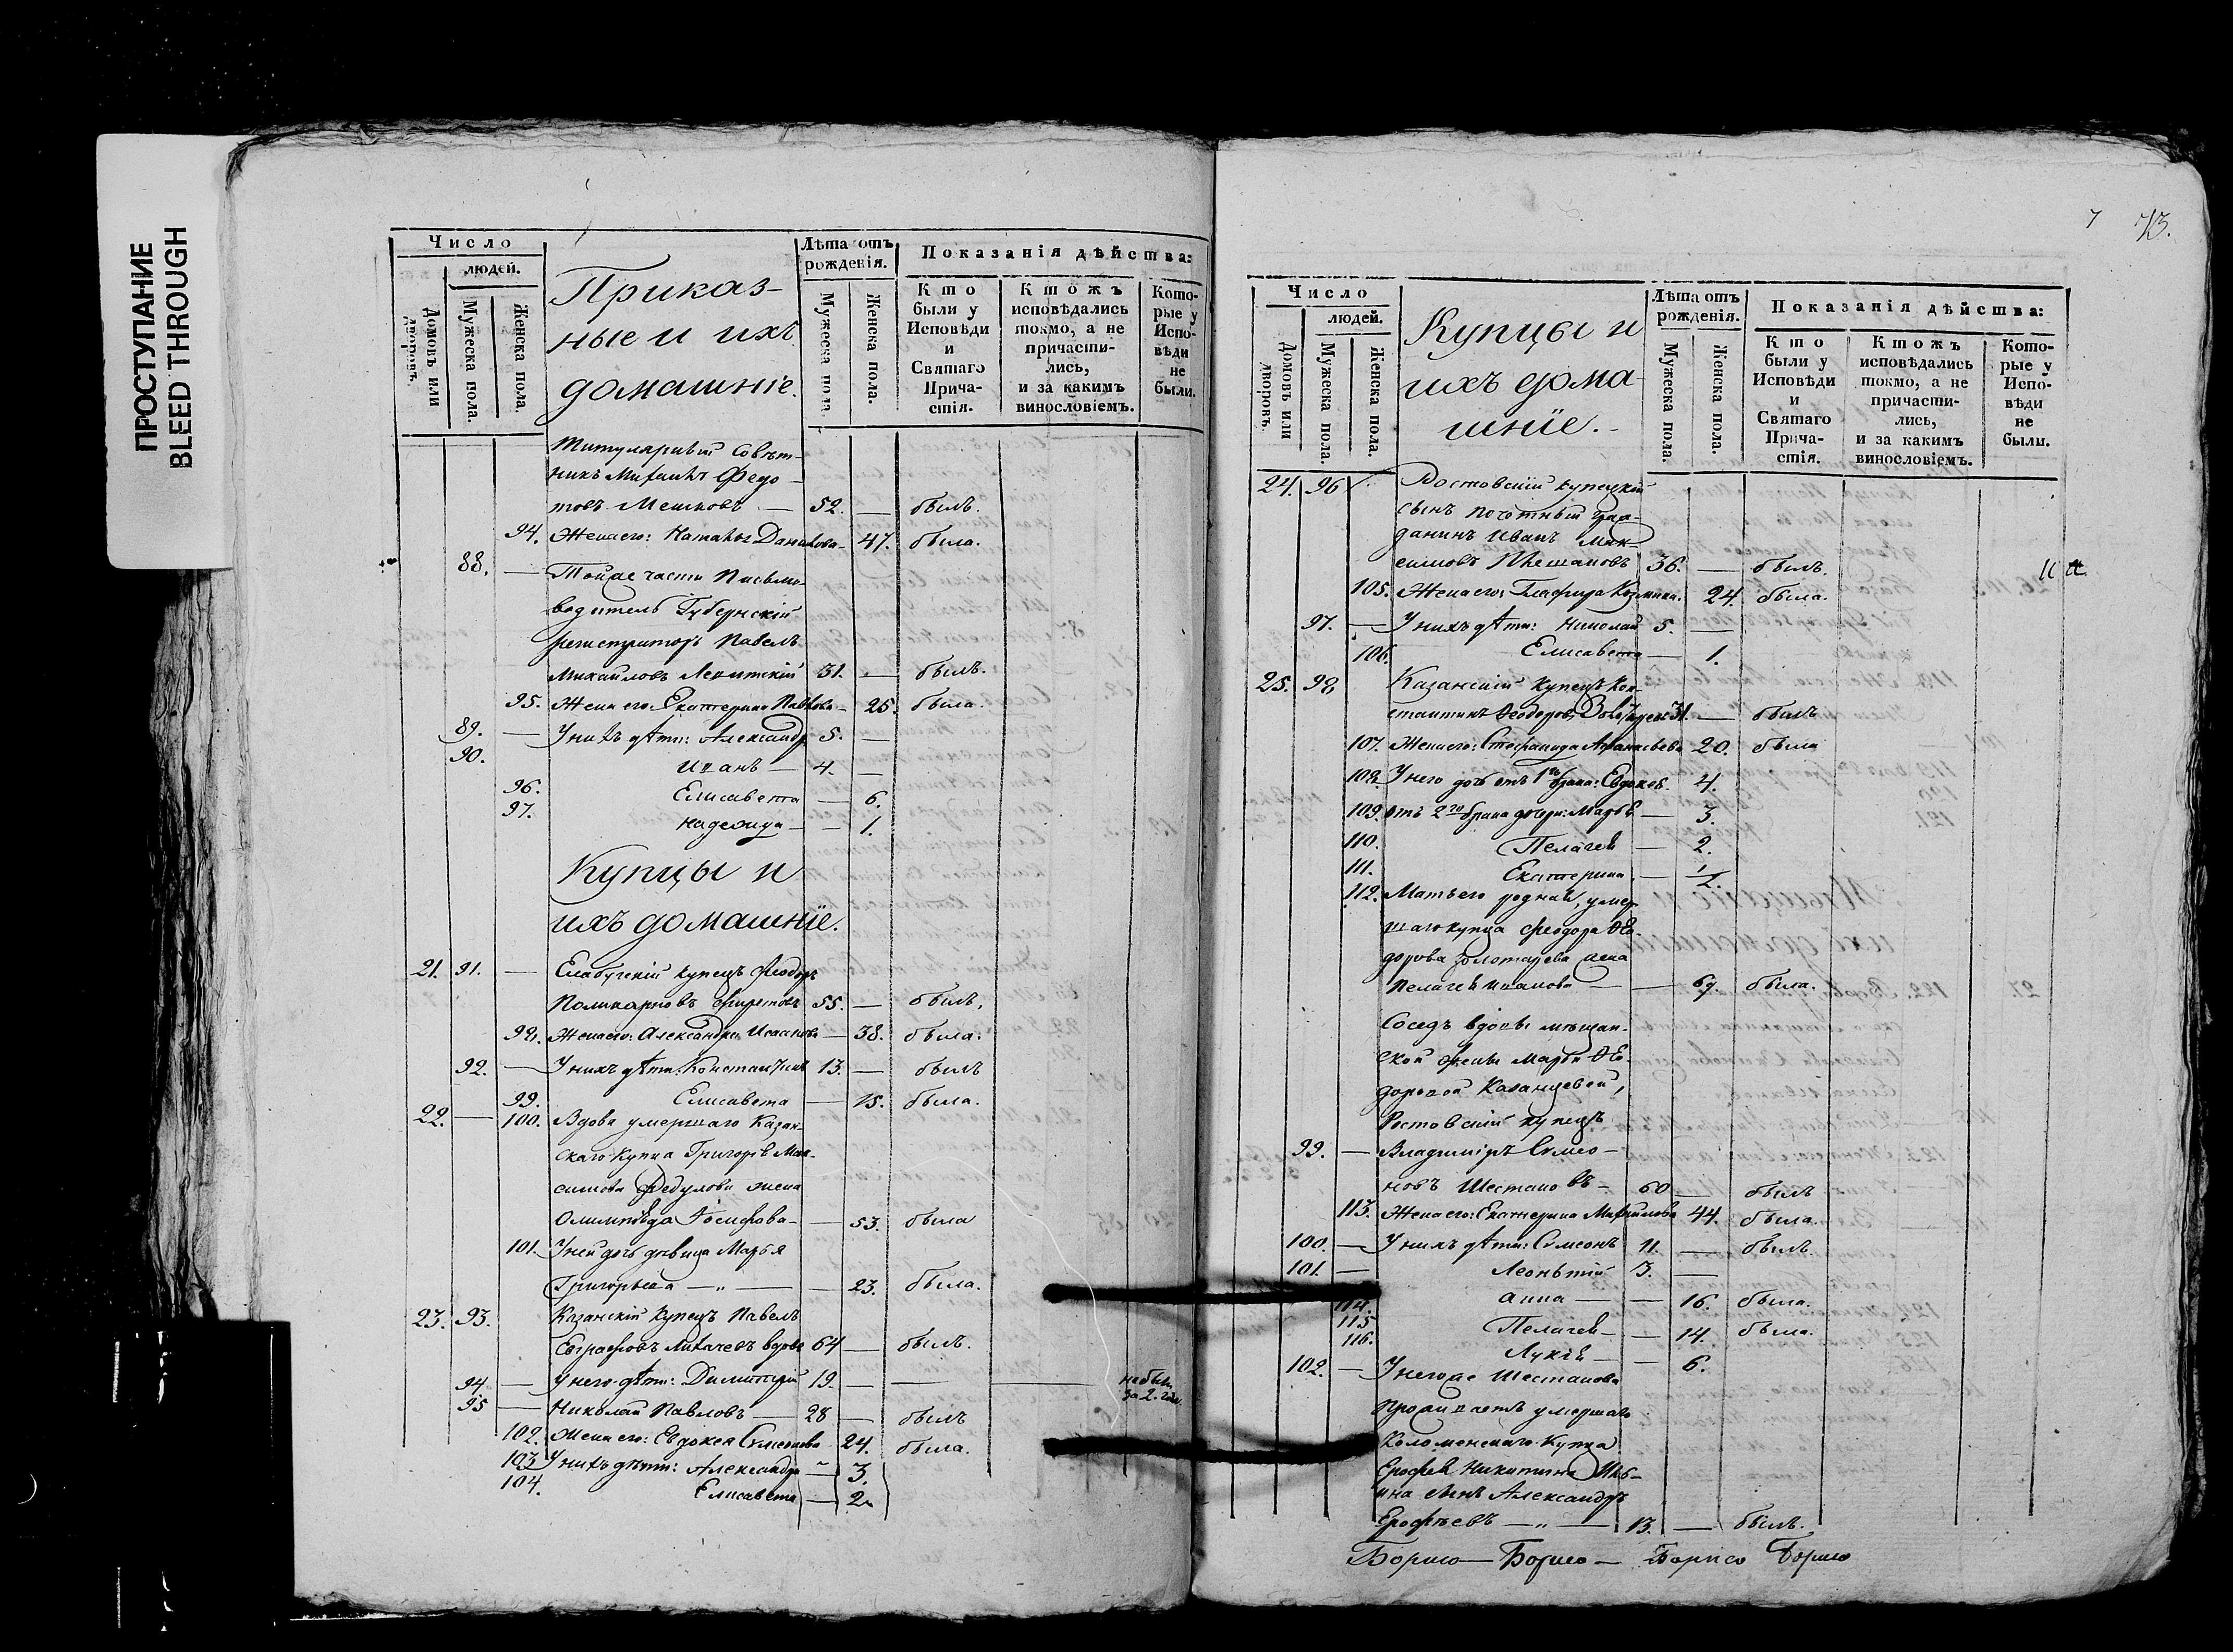 ПРОСТУПАНИЕ
BLEED THROUGH
Число
людей.
Домовъ или дворовъ.
Мужеска пола.
Женска пола.
Приказ-
ные и ихъ
домашніе.
Лѣта отъ рожденія.
Мужеска пола.
Женска пола.
Показанія дѣйства:
Кто были у Исповѣди и Святаго Прича- стія.
Ктожъ исповѣдались токмо, а не причасти- лись, и за какимъ винословіемъ.
Кото- рые у Испо- вѣди не были.
Титулярный Совѣт-
никъ Михаилъ Федо-
товъ Мешковъ — 52. — былъ.
94. Жена его: Наталья Данилова — 47. была.
88. — Тойже части Письмо-
водитель Губернскій
регистраторъ Павелъ
Михайловъ Левитскій 31. — былъ.
95. Жена его: Екатерина Павлова — 25. была.
89. — У нихъ дѣти: Александръ 5. —
90. Иванъ — 4. —
96. Елисавета — 6.
97. Надежда — — 1.
Купцы и
ихъ домашніе.
21. 91. — Елабугскій купецъ Феодоръ
Поликарповъ 55. — былъ.
98. Жена его: Александра Исаакова — 38. была.
92. — У нихъ дѣти: Константинъ 13. — былъ
99. Елисавета — 15. была.
22. — 100. Вдова умершаго Казан-
скаго купца Григорья Мак-
симова Федулова жена
Олимпіада Іосифова — — 53. была
101. У ней дочь дѣвица Марья
Григорьева — „ — — 23. была.
23. 93. Казанскій Купецъ Павелъ
Евграфовъ Лихачевъ вдовъ 64 — былъ.
94 — У него дѣти: Димитрій 19. — — — не былъ за 2. года.
95 — Николай Павловъ — 28 — былъ
102. Жена его: Евдокея Симеонова 24. была.
103 У нихъ дѣти: Александра — 3.
104. Елисавета — 2.
7 73.
Число
людей.
Домовъ или дворовъ.
Мужеска пола.
Женска пола.
Купцы и
ихъ дома
шніе.
Лѣта отъ рожденія.
Мужеска пола.
Женска пола.
Показанія дѣйства:
Кто были у Исповѣди и Святаго Прича- стія.
Ктожъ исповѣдались токмо, а не причасти- лись, и за какимъ винословіемъ.
Кото- рые у Испо- вѣди не были.
24. 96 Ростовскій купецкій
сынъ почотный граж-
данинъ Иванъ Мак-
симовъ Плешановъ 36. — былъ.
105. Жена его: Глафира Козмина. 24. была.
97. — У нихъ дѣти: Николай 5. —
106. Елисавета — 1.
25. 98 Казанскій купецъ Кон-
стантинъ Феодоровъ Золотаревъ 31. — былъ
107. Жена его: Стефанида Афанасьева 20. была
108. У него дочь отъ 1го брака: Евдокея. 4.
109. отъ 2го брака дочери: Марья — 3.
110. Пелагея — 2.
111. Екатерина. — 1/2.
112. Мать его родная, умер-
шаго купца Феодора Фео-
дорова Золотарева жена
Пелагея Иванова — — 69. была.
Сосѣдъ вдовы мѣщан-
ской жены Марьи Фео-
доровой Казанцевой,
Ростовскій купецъ
99. — Владиміръ Симео-
новъ Шестаковъ — 60 — былъ
113. Жена его: Екатерина Михайлова 44. была.
100. — У нихъ дѣти: Симеонъ 11. — былъ.
101. — Леонтій 3. —
114. Анна — — 16. была.
115 Пелагея — — 14. была.
116. Лукія — — 6.
102. — У негоже Шестакова
проживаетъ умершаго
Коломенскаго купца
Ерофея Никитина
сынъ Александръ
Ерофѣевъ — „ — 13. — былъ.